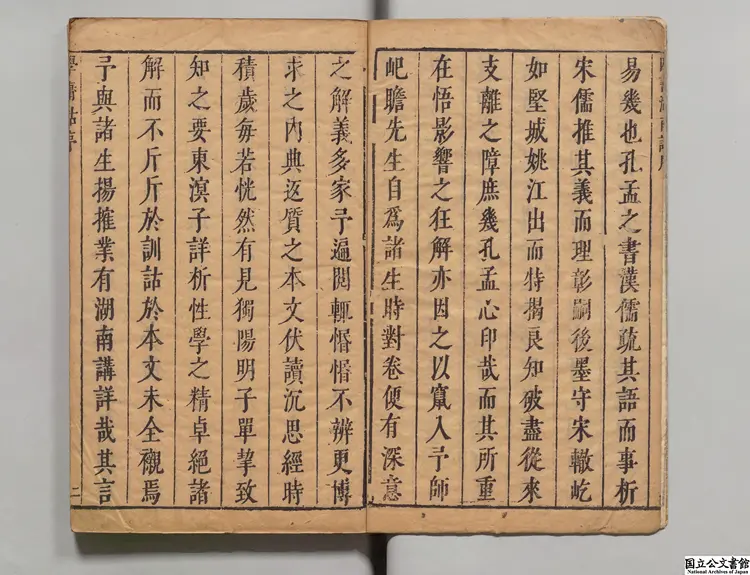 易幾也孔孟之書漢儒疏其語而事析
宋儒推其義而理彰嗣後墨守宋轍屹
如堅城姚江出而特揭良知破盡從來
支離之障庶幾孔孟心印哉而其所重
在悟影響之狂解亦因之以竄入予師
屺瞻先生自為諸生時對卷便有深意
之解義多家予遍閱輒惛惛不辨更博
求之內典返質之本文伏讀沉思經時
積歲每若恍然有見獨陽明子單挈致
知之要東溟子詳析性學之精卓絕諸
解而不斤斤於訓詁於本文未全襯焉
予與諸生揚搉業有湖南講詳哉其言
二
国立公文書館
National Archives of Japan